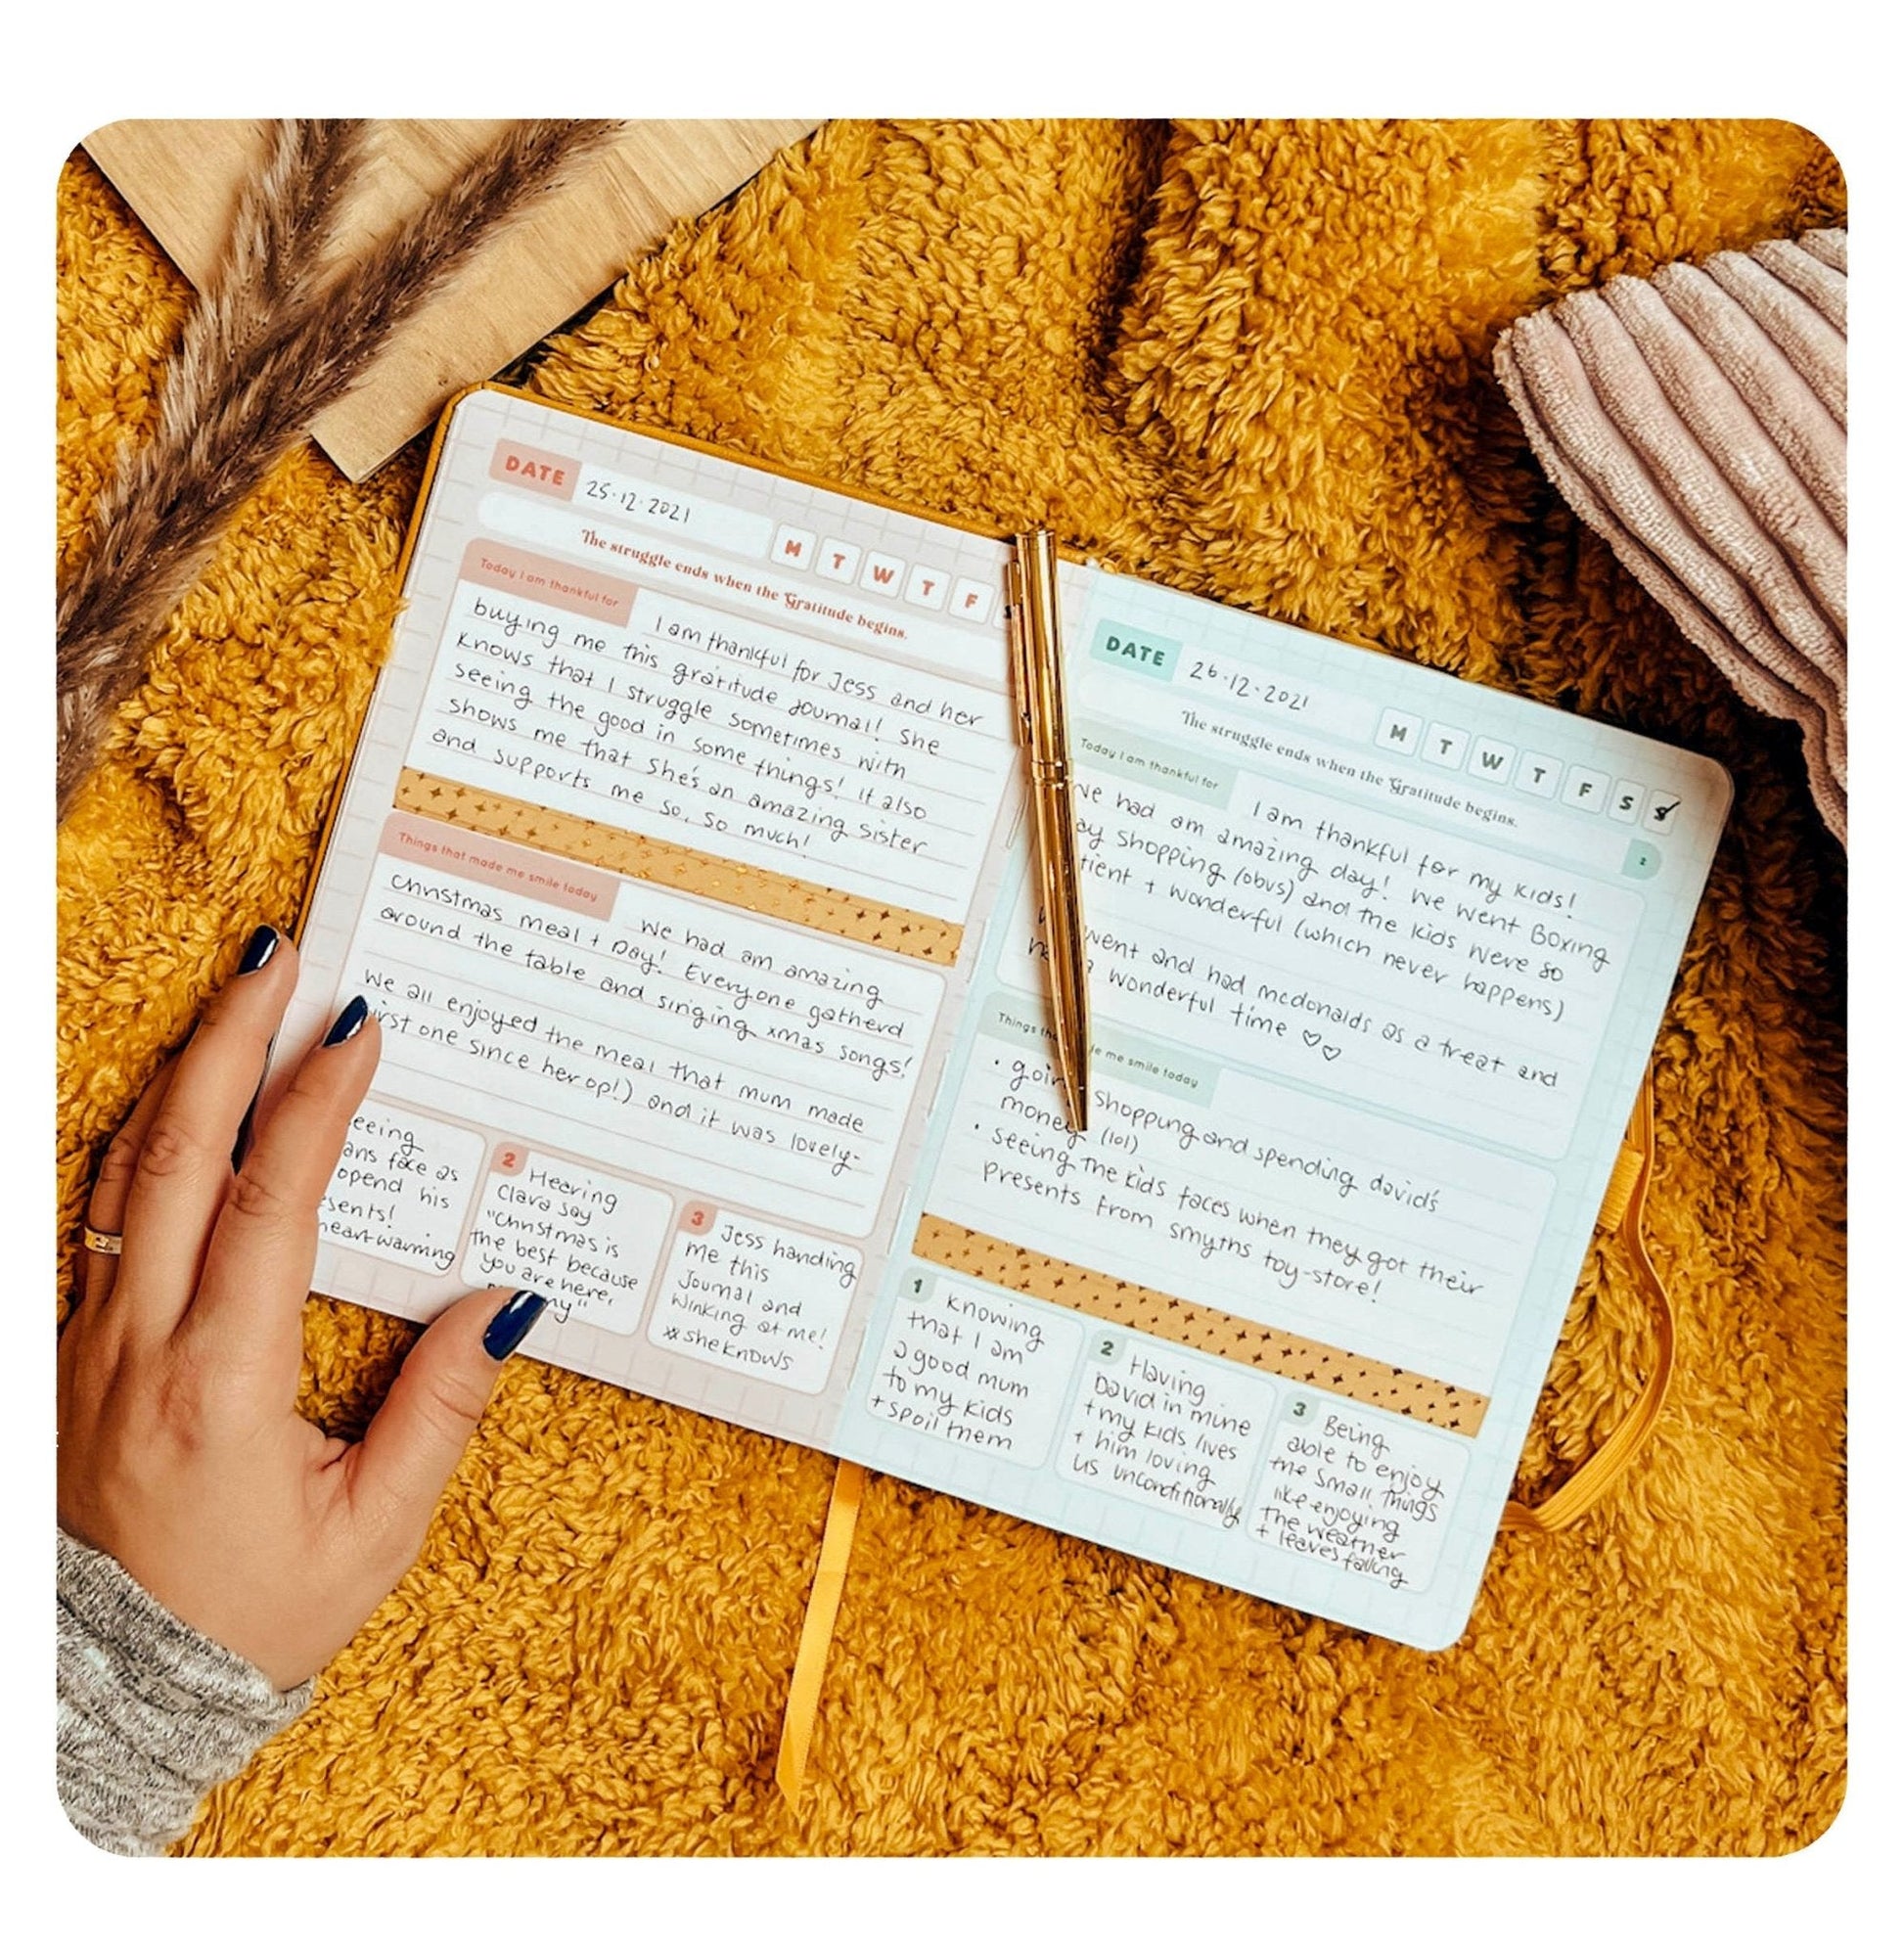 DATE 25.12.2021
M T W T F
The struggle ends when the Gratitude begins.
Today I am thankful for
I am thankful for Jess and her
buying me this gratitude Journal! She
knows that I struggle sometimes with
seeing the good in some things! It also
shows me that she's an amazing sister
and supports me so, so much!
Things that made me smile today
We had am amazing
Christmas meal + Day! Everyone gatherd
around the table and singing xmas songs!
We all enjoyed the meal that mum made
one since her op!) and it was lovely.
face as
opend his
heart-warming
2 Heering
Clara say
"Christmas is
the best because
you are here,
3 Jess handing
me this
Journal and
winking at me!
#sheknows
DATE 26.12.2021
M T W T F S S
The struggle ends when the Gratitude begins.
2
Today I am thankful for
I am thankful for my kids!
We had am amazing day! We went Boxing
shopping (obvs) and the kids were so
+ wonderful (which never happens)
went and had mcdonalds as a treat and
a wonderful time ♡♡
Things me smile today
• shopping and spending david's
money (lol)
• seeing the kids faces when they got their
presents from smyths toy-store!
1 Knowing
that I am
a good mum
to my kids
+ spoil them
2 Having
David in mine
+ my kids lives
+ him loving
us unconditionally
3 Being
able to enjoy
the small things
like enjoying
the weather
+ leaves falling